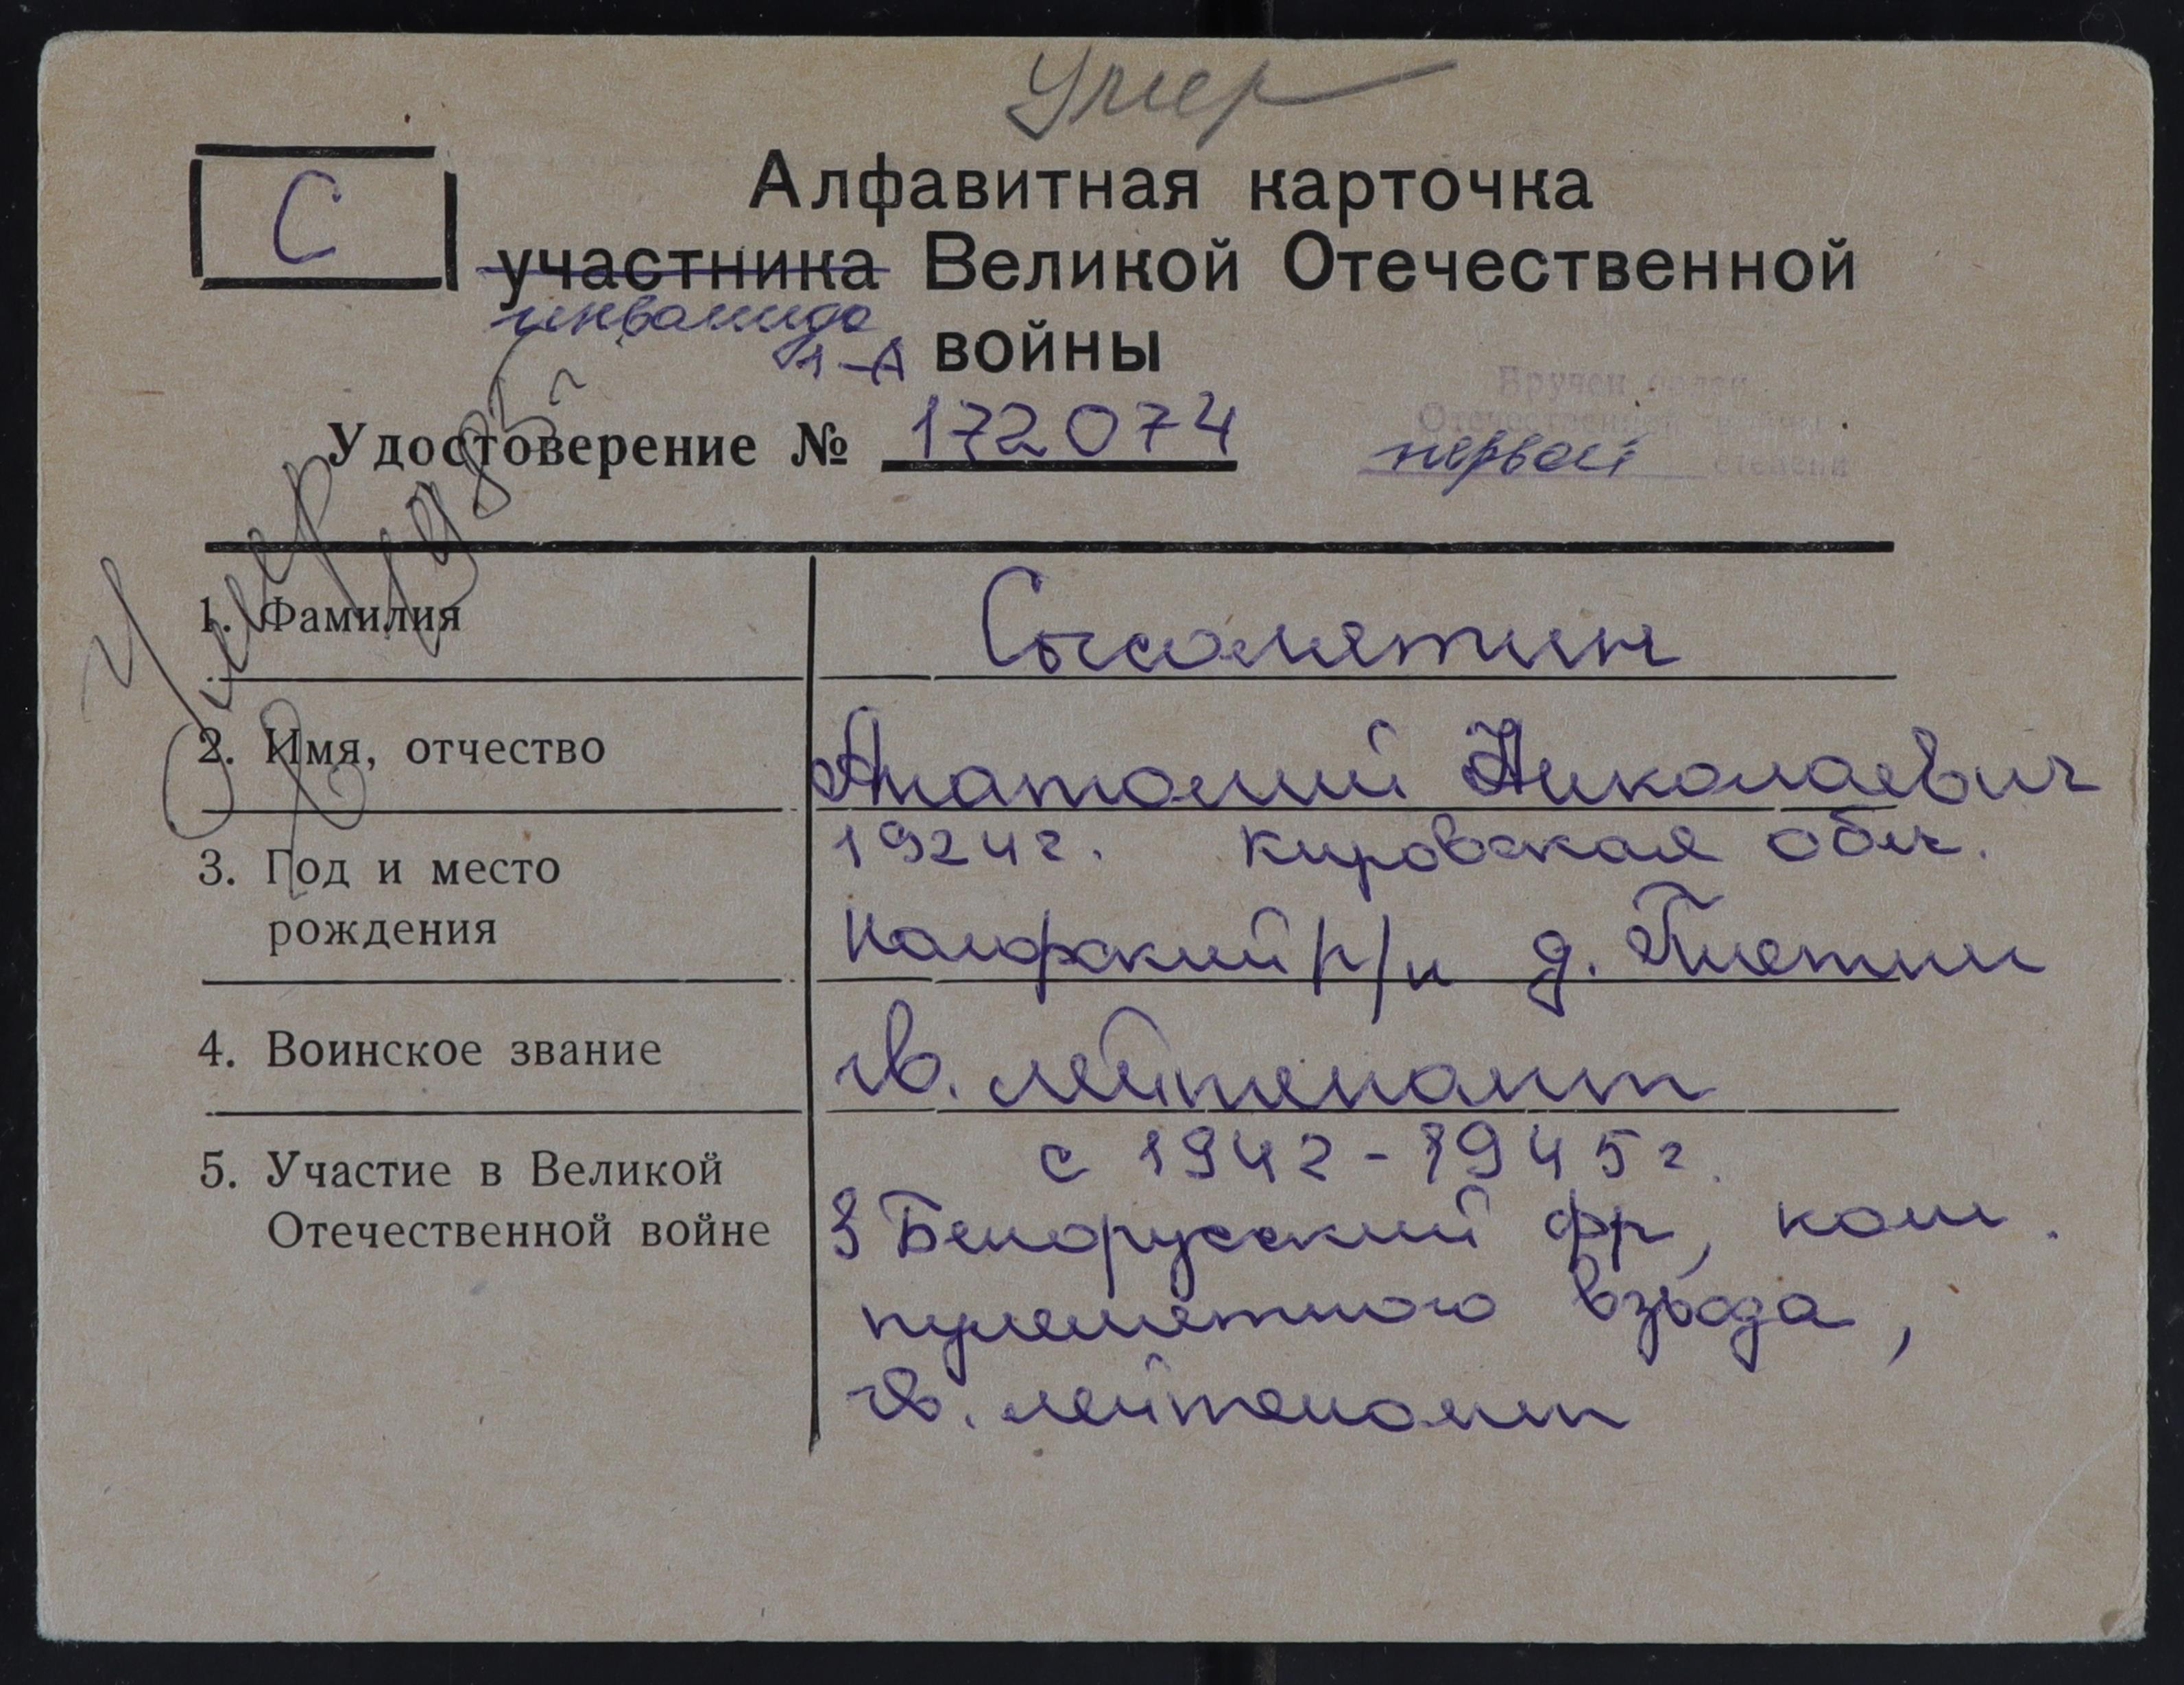 Умер
С
Алфавитная карточка
участника Великой Отечественной
инвалида
1-А войны
Вручен орден
Отечественной войны
Удостоверение № 172074
первой степени
Умер
1985 г
1. Фамилия Сысолятин
2. Имя, отчество Анатолий Николаевич
3. Год и место 1924г. Кировская обл.
рождения р/н д.
4. Воинское звание гв. лейтенант
5. Участие в Великой с 1942-1945г.
Отечественной войне 3 Белорусский фр, ком.
пулеметного взвода,
гв. лейтенант